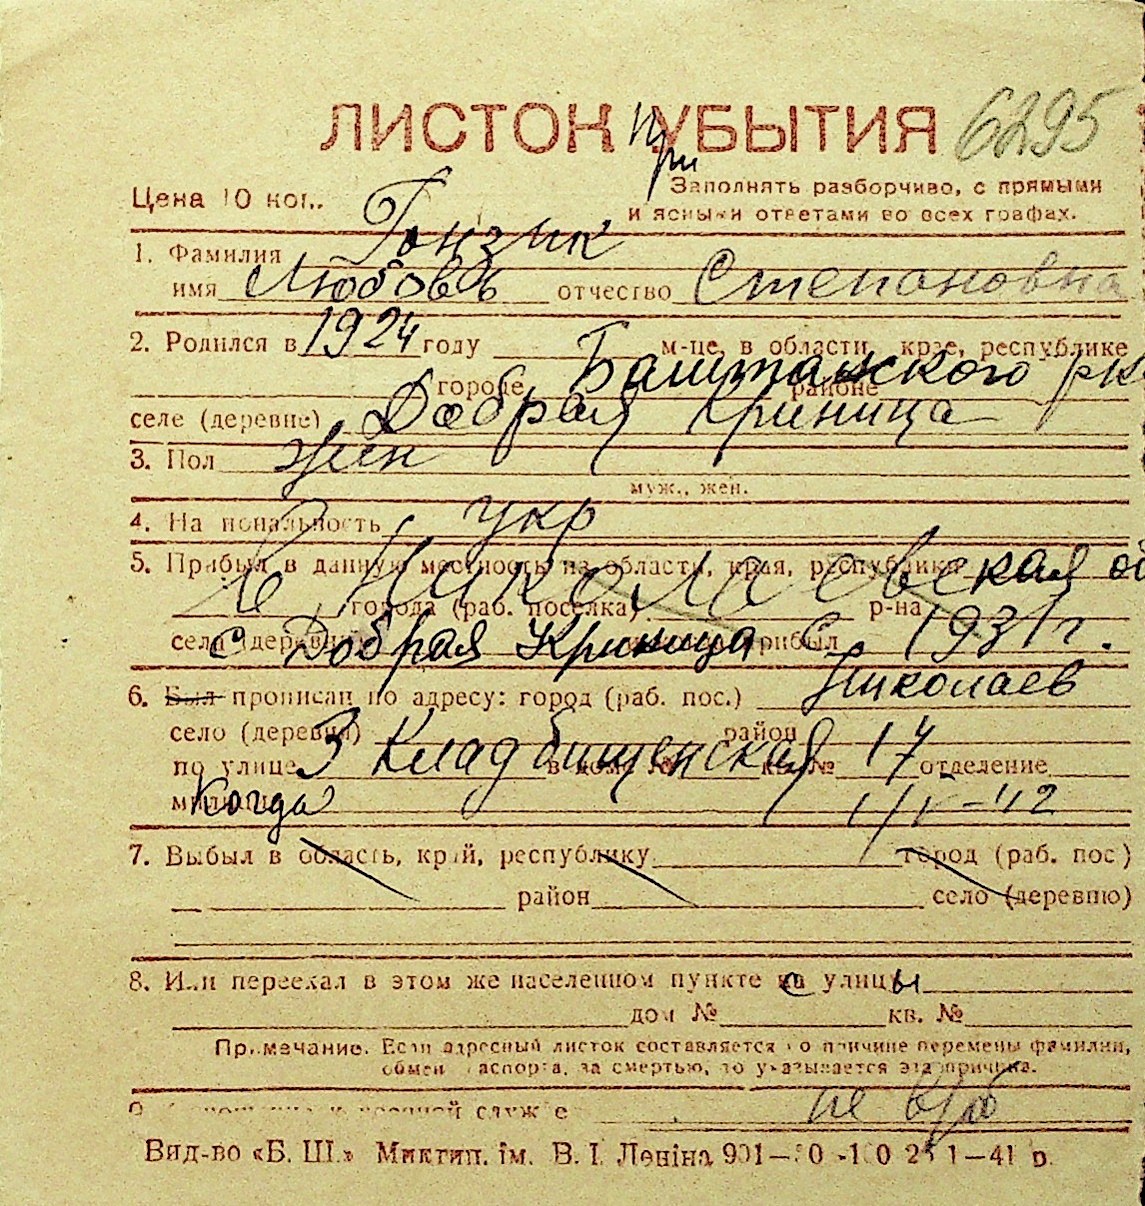 ЛИСТОК УБЫТИЯ при 6295
Цена 10 коп.
Заполнять разборчиво, с прямыми
и ясными ответами во всех графах.
1. Фамилия Гонзик
имя Любовь отчество Степановна
2. Родился в 1924 году м-це, в области, крае, республике
городе районе Баштанского
селе (деревне) Добрая Криница
3. Пол жен
муж., жен.
4. Национальность укр
5. Прибыл в данную местность из области, края, республики
Николаевская
города (раб. поселка) р-на
села (деревни) с Добрая Криница прибыл 1931 г.
6. Был прописан по адресу: город (раб. пос.) Николаев
село (деревня) район
по улице 3 Кладбищенская в доме № кв. № 17 отделение
милиции Когда
7. Выбыл в область, край, республику город (раб. пос)
район село (деревню)
8. Или переехал в этом же населенном пункте с улицы
дом № кв. №
Примечание. Если адресный листок составляется по причине перемены фамилии,
обмен паспорта, за смертью, то указывается эта причина.
военной службе
Вид-во «Б. Ш.» Миктип. ім. В. І. Леніна